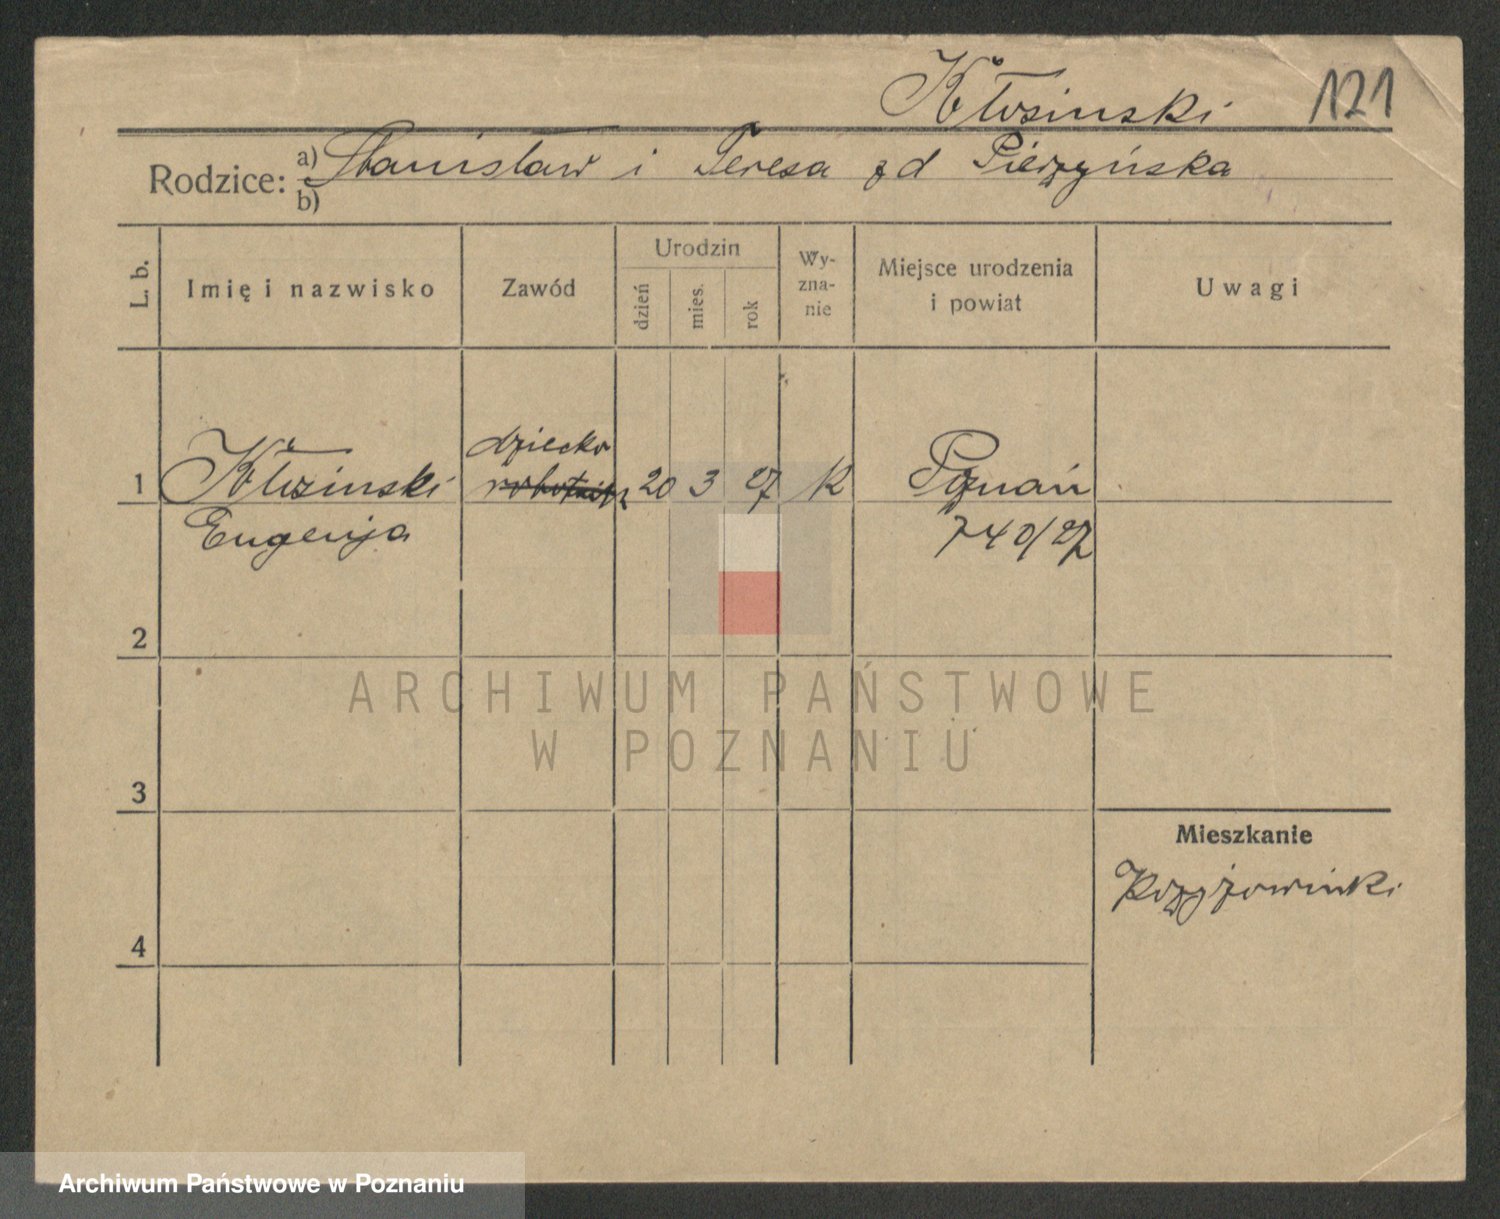 Kłosinski 121
Rodzice: a) Stanisław i Teresa zd
b)
L. b. Imię i nazwisko Zawód Urodzin dzień mies. rok Wy-zna-nie Miejsce urodzenia i powiat Uwagi
dziecko
1 Kłosinski robotnik 20 3 27 k Poznań
Eugenja 740/27
2
ARCHIWUM PAŃSTWOWE
W POZNANIU
3
Mieszkanie
4
Archiwum Państwowe w Poznaniu